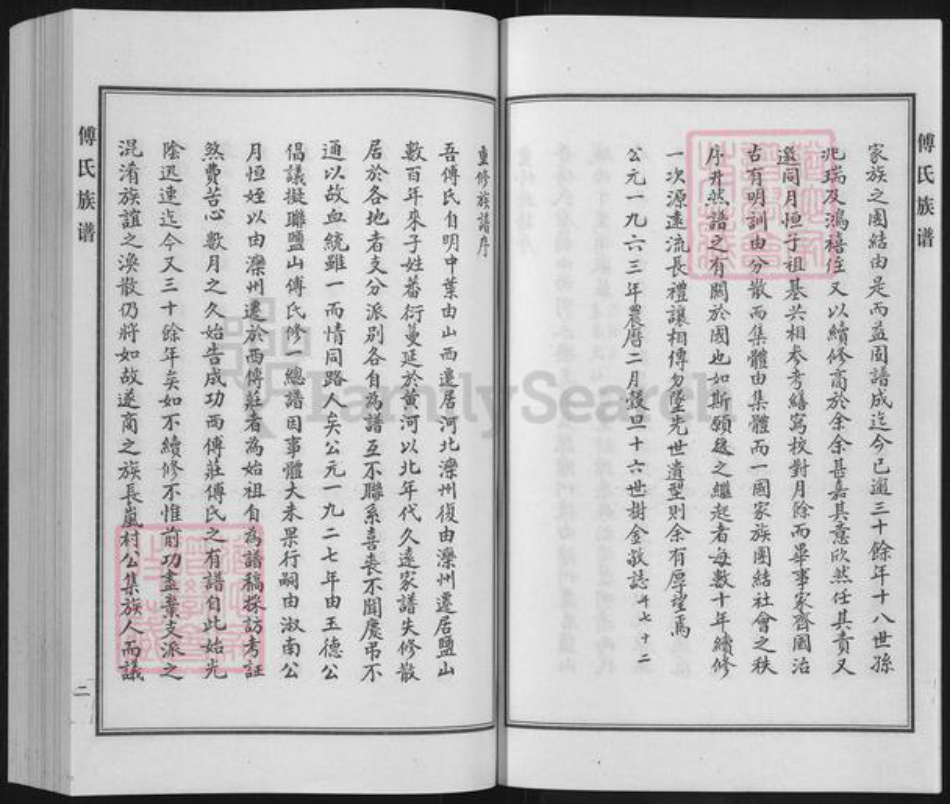 傅氏族谱
家族之團結由是而益固譜成迄今已逾三十餘年十八世孫
兆瑞及鴻禧侄又以續修商於余余甚嘉其意欣然任其責又
邀同月恒子祖基共相参考繕寫校對月餘而畢事家齊國治
古有明訓由分散而集體由集體而一國家族團結社會之秩
序井然譜之有關於國也如斯願後之繼起者每數十年續修
一次源遠流長禮讓相傳勿墜先世遺型則余有厚望焉
公元一九六三年農曆二月穀旦十六世樹金敬誌年七十二
重修族譜序
吾傅氏自明中葉由山西遷居河北灤州復由灤州遷居鹽山
數百年來子姓蕃衍蔓延於黄河以北年代久遠家譜失修散
居於各地者支分派别各自為譜互不聯系喜喪不聞慶弔不
通以故血統雖一而情同路人矣公元一九二七年由玉德公
倡議擬聯鹽山傅氏修一總譜因事體大未果行嗣由淑南公
月恒姪以由灤州遷於西傅莊者為始祖自為譜稿採訪考証
煞費苦心數月之久始告成功西傅莊傅氏之有譜自此始光
陰迅速迄今又三十餘年矣如不續修不惟前功盡棄支派之
混淆族誼之渙散仍將如故遂商之族長嵐村公集族人而議
傅氏族谱
二
FamilySearch